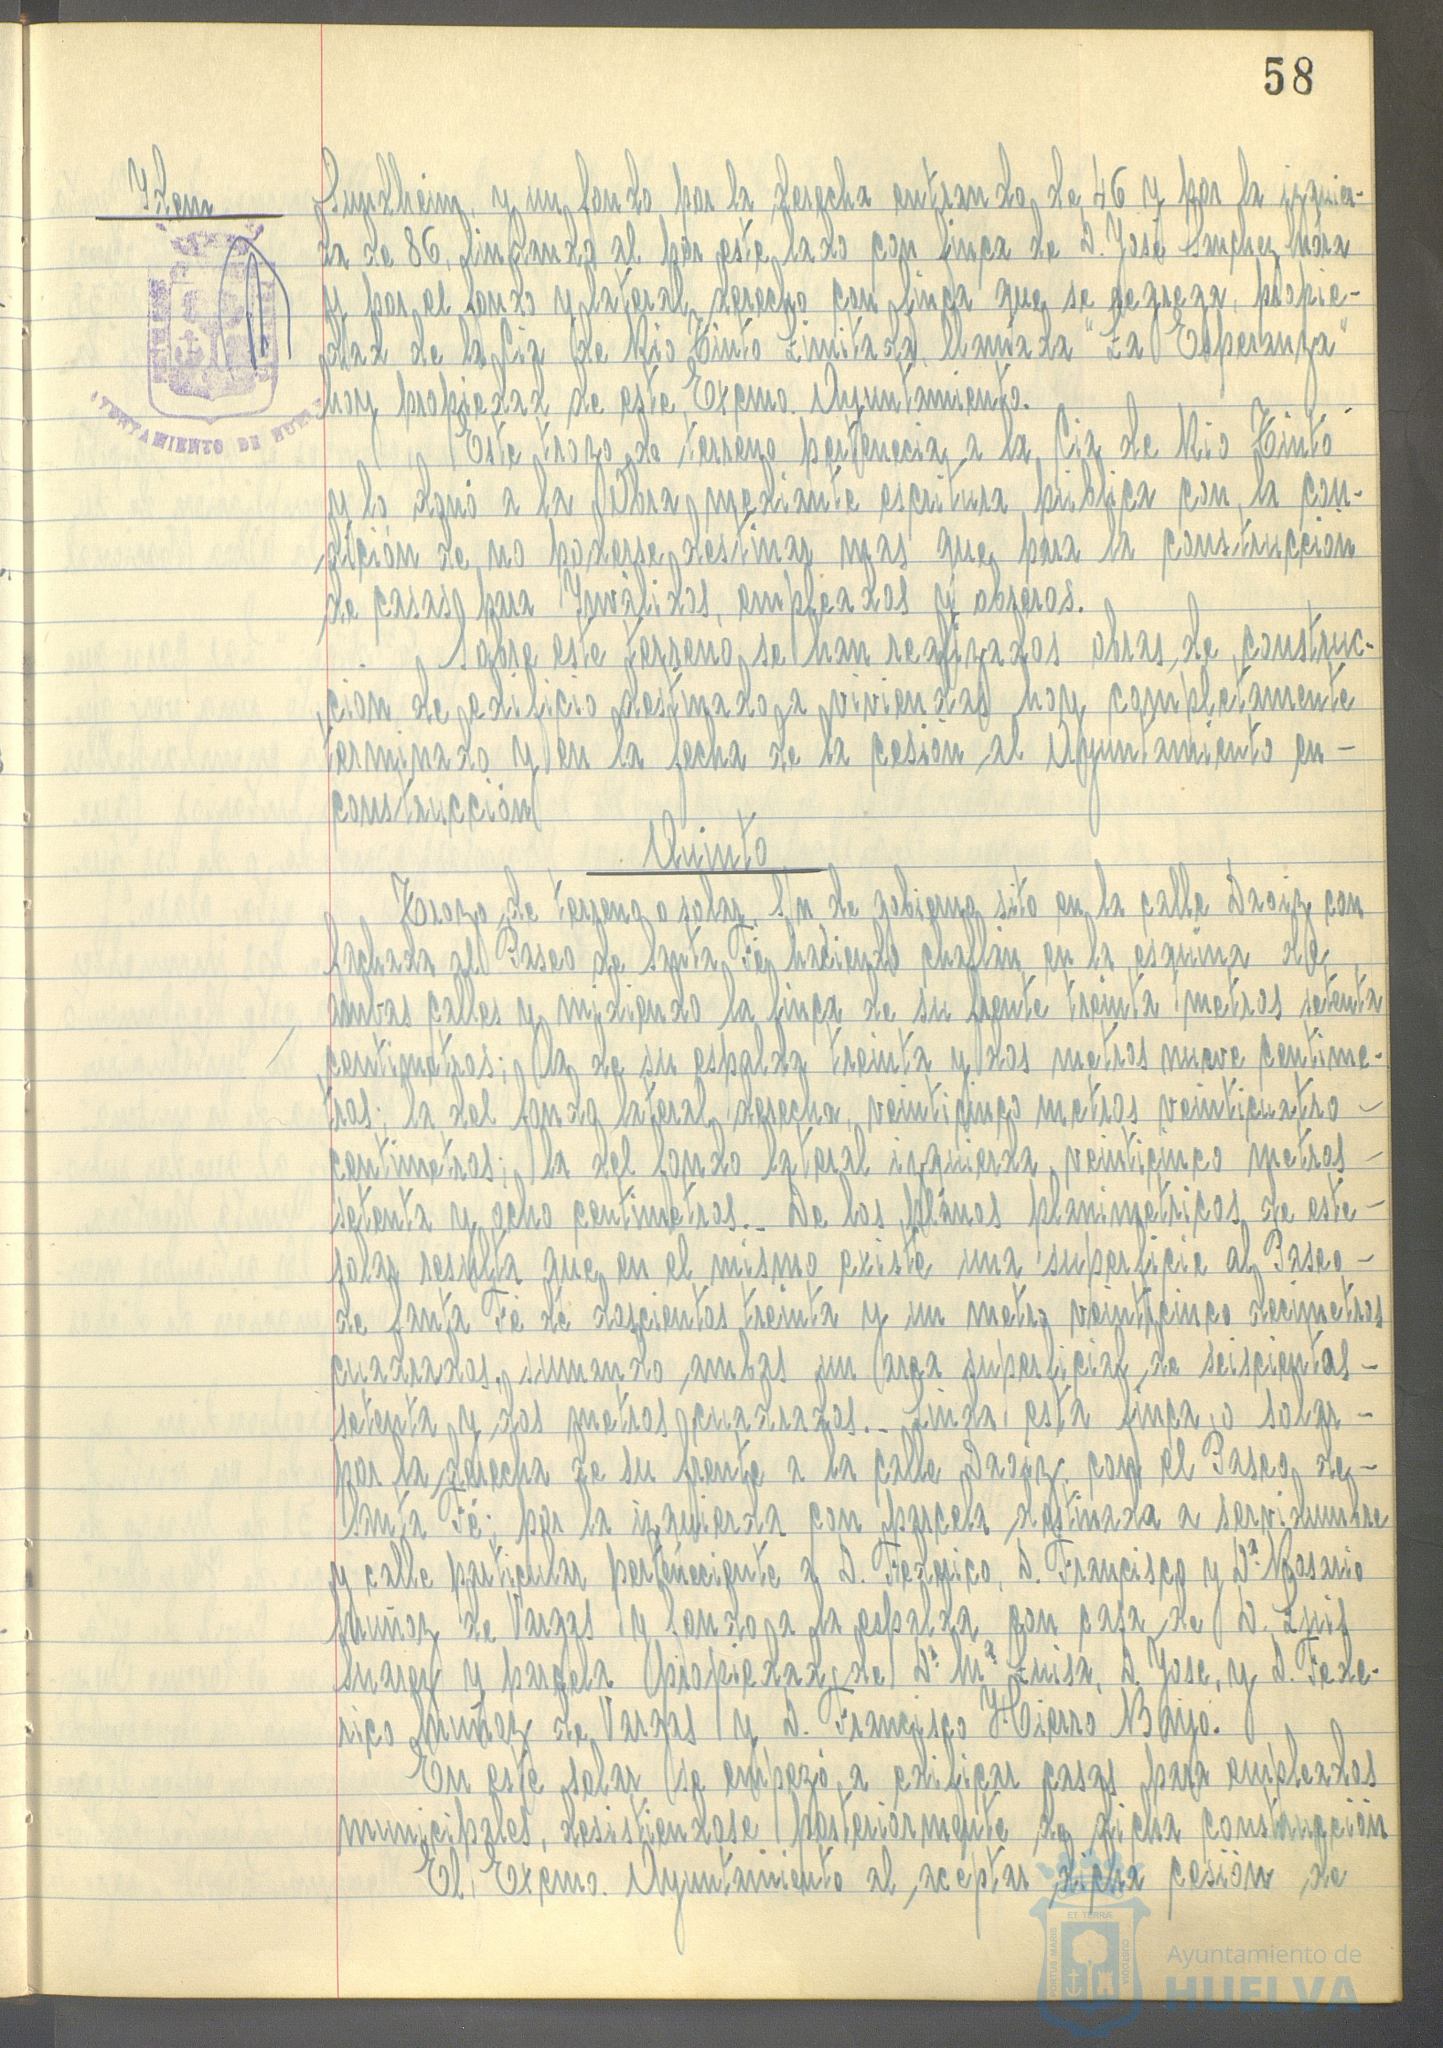 58
Idem
Sundheim, y un fondo por la derecha entrando de 46 y por la izquier-
da de 86, lindando al por este lado con finca de D. José Sanchez Mora
y por el fondo y lateral derecho con finca que se segrega, propie-
dad de la Cia de Rio Tinto Limitada, llamada "La Esperanza"
hoy propiedad de este Excmo. Ayuntamiento.
AYUNTAMIENTO DE HUELVA
Este trozo de terreno pertenecia a la Cia de Rio Tinto
y lo donó a la Obra mediante escritura pública con la con-
dición de no poderse destinar mas que para la construccion
de casas para Inválidos, empleados y obreros.
Sobre este terreno se han realizados obras de construc-
cion de edificio destinado a viviendas hoy completamente
terminado y en la fecha de la cesion al Ayuntamiento en-
construcción
Quinto
Trozo de terreno o solar, s/n de gobierno sito en la calle Daoiz con
fachada al Paseo de Santa Fé haciendo chaflán en la esquina de
ambas calles y midiendo la linea de su frente treinta metros setenta
centimetros; la de su espalda treinta y dos metros nueve centime-
tros; la del fondo lateral derecha, veinticinco metros veinticuatro -
centimetros; la del fondo lateral izquierda, veinticinco metros -
setenta y ocho centimetros.- De los planos planimetricos de este -
solar resulta que en el mismo existe una superficie al Paseo -
de Santa Fé de doscientos treinta y un metro veinticinco decimetros
cuadrados, sumando ambas un area superficial de seiscientas -
setenta y dos metros cuadrados.- Linda esta finca o solar -
por la derecha de su frente a la calle Daoiz con el Paseo de -
Santa Fé; por la izquierda con parcela destinada a servidumbre
y calle particular perteneciente a D. Federico, D. Francisco y Dª. Rosario
Muñoz de Vargas y fondo a la espalda con casa de D. Luis
Suarez y parcela propiedad de Dª. Mª Luisa, D. Jose, y D. Fede-
rico Muñoz de Vargas y D. Francisco Hierro Barjo.
En este solar se empezó a edificar casas para empleados
municipales, desistiendose posteriormente de dicha construcción
El Excmo. Ayuntamiento al aceptar dicha cesión de
ET TERRÆ
PORTUS MARIS
CUSTODIA
Ayuntamiento de
HUELVA